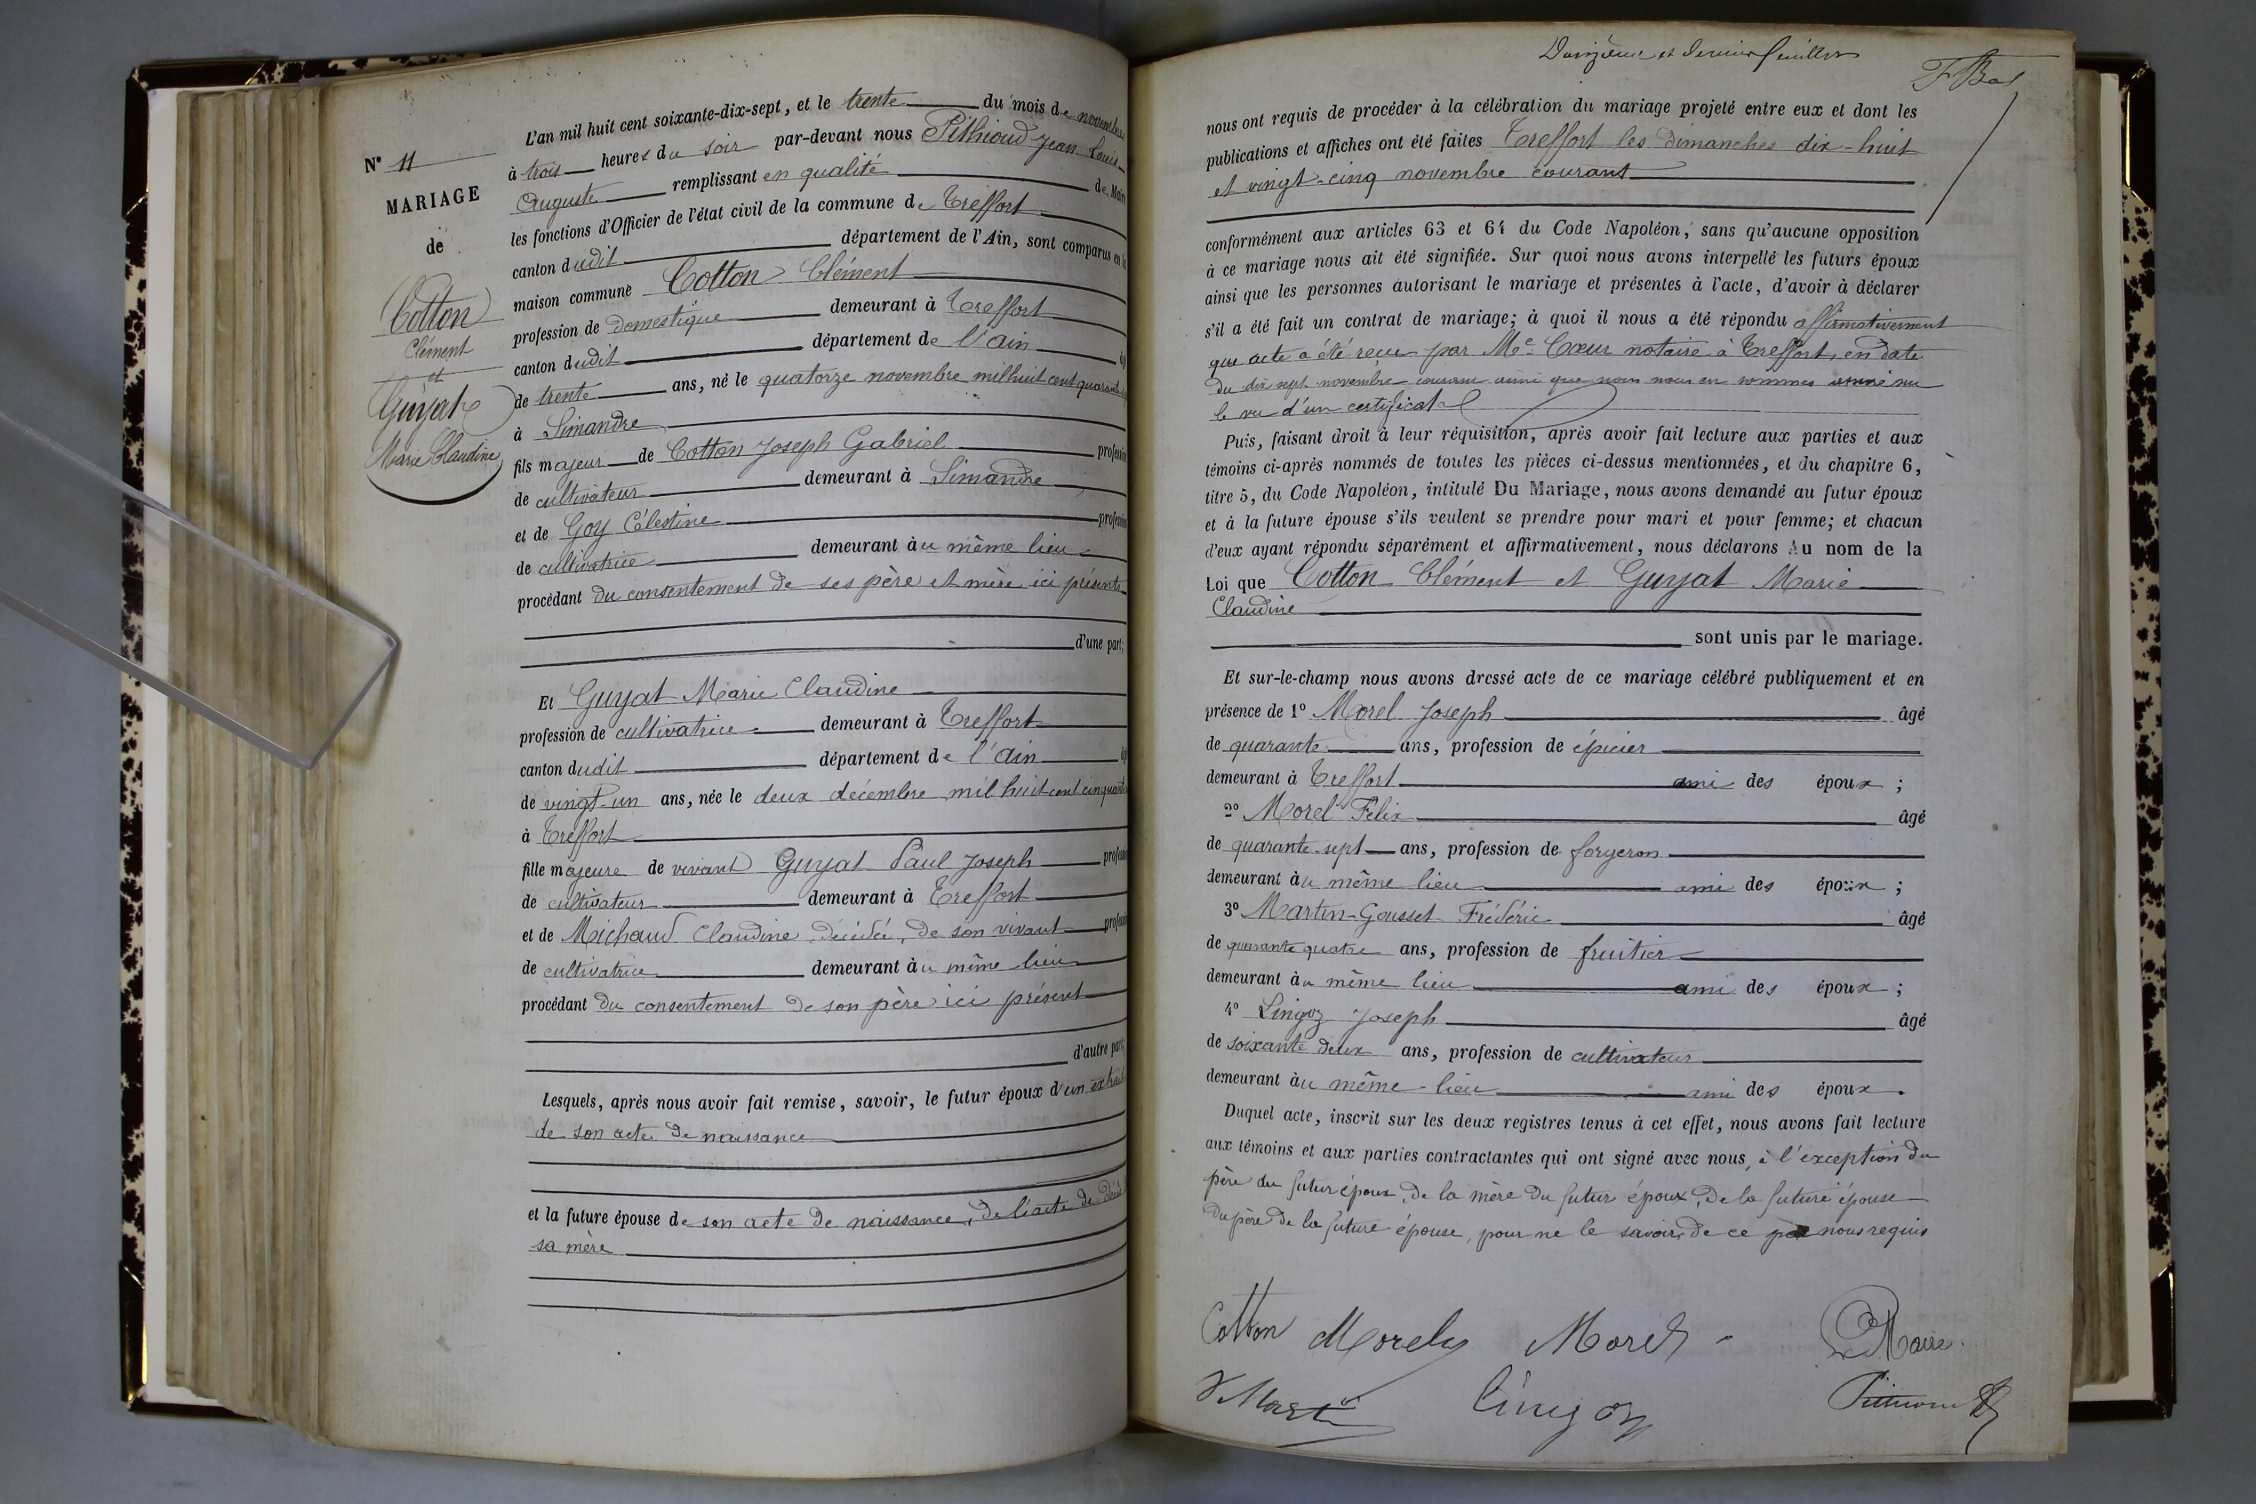 N° 11
MARIAGE
de
Cotton
Clément
et
Guyat
Marie Claudine
L'an mil huit cent soixante-dix-sept, et le trente du mois de novembre
à trois heures du soir par-devant nous Pithioud Jean Louis
Auguste remplissant en qualité de Maire
les fonctions d'Officier de l'état civil de la commune de Treffort
canton dudit département de l'Ain, sont comparus en la
maison commune Cotton Clément
profession de domestique demeurant à Treffort
canton dudit département de l'ain
de trente ans, né le quatorze novembre mil huit cent quarante
à Simandre
fils majeur de Cotton Joseph Gabriel profession
de cultivateur demeurant à Simandre
et de Goy Célestine profession
de cultivatrice demeurant au même lieu
procédant du consentement de ses père et mère ici présents
d'une part;
Et Guyat Marie Claudine
profession de cultivatrice demeurant à Treffort
canton dudit département de l'ain
de vingt-un ans, née le deux décembre mil huit cent cinquante
à Treffort
fille majeure de vivant Guyat Paul Joseph profession
de cultivateur demeurant à Treffort
et de Michaud Claudine décédée, de son vivant profession
de cultivatrice demeurant au même lieu
procédant du consentement de son père ici présent
d'autre part;
Lesquels, après nous avoir fait remise, savoir, le futur époux d'un extrait
de son acte de naissance
et la future épouse de son acte de naissance, de l'acte de décès
sa mère
Douzième et dernier feuillet
nous ont requis de procéder à la célébration du mariage projeté entre eux et dont les
publications et affiches ont été faites Treffort les dimanches dix-huit
et vingt-cinq novembre courant
conformément aux articles 63 et 64 du Code Napoléon, sans qu'aucune opposition
à ce mariage nous ait été signifiée. Sur quoi nous avons interpellé les futurs époux
ainsi que les personnes autorisant le mariage et présentes à l'acte, d'avoir à déclarer
s'il a été fait un contrat de mariage; à quoi il nous a été répondu affirmativement
que acte a été reçu par Me Cœur notaire à Treffort, en date
du dix sept novembre courant ainsi que nous nous en sommes assuré sur
le vu d'un certificat
Puis, faisant droit à leur réquisition, après avoir fait lecture aux parties et aux
témoins ci-après nommés de toutes les pièces ci-dessus mentionnées, et du chapitre 6,
titre 5, du Code Napoléon, intitulé Du Mariage, nous avons demandé au futur époux
et à la future épouse s'ils veulent se prendre pour mari et pour femme; et chacun
d'eux ayant répondu séparément et affirmativement, nous déclarons Au nom de la
Loi que Cotton Clément et Guyat Marie
Claudine
sont unis par le mariage.
Et sur-le-champ nous avons dressé acte de ce mariage célébré publiquement et en
présence de 1° Morel Joseph âgé
de quarante ans, profession de épicier
demeurant à Treffort ami des époux ;
2° Morel Félix âgé
de quarante-sept ans, profession de forgeron
demeurant au même lieu ami des époux ;
3° Martin-Gousset Frédéric âgé
de quarante quatre ans, profession de fruitier
demeurant au même lieu ami des époux ;
4° Lingoz Joseph âgé
de soixante deux ans, profession de cultivateur
demeurant au même lieu ami des époux .
Duquel acte, inscrit sur les deux registres tenus à cet effet, nous avons fait lecture
aux témoins et aux parties contractantes qui ont signé avec nous, à l'exception du
père du futur époux, de la mère du futur époux, de la future épouse
du père de la future épouse, pour ne le savoir, de ce par nous requis
Cotton Morel Morel Le Maire
Martin Lingoz Pithioud